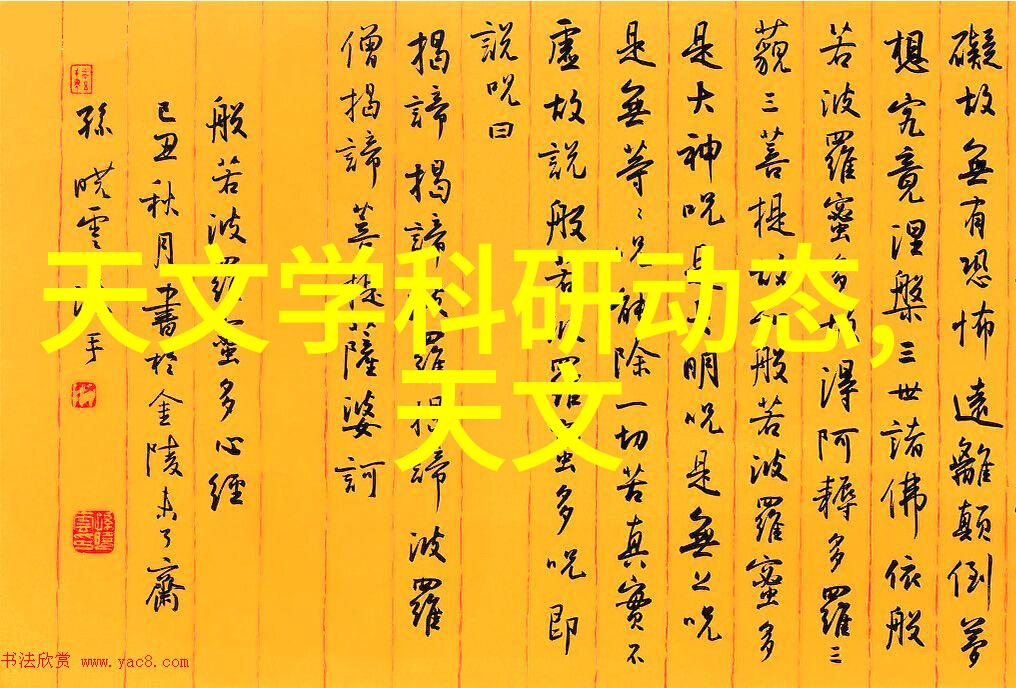 天文学科研动态,
天文
礙故無有恐怖遠離顛倒夢
想究竟涅槃三世諸佛依般
若波羅蜜多故得阿耨多羅三
藐三菩提故知般若波羅蜜多
是大神呪是大明呪是無上呪
是無等〻呪能除一切苦真實不
虛故說般若波羅蜜多呪即
說呪曰
揭諦揭諦波羅揭諦波羅
僧揭諦菩提薩婆訶
般若波羅蜜多心經
己丑秋月書於金陵未了齋
孫曉雲手
书法欣赏 www.yac8.com